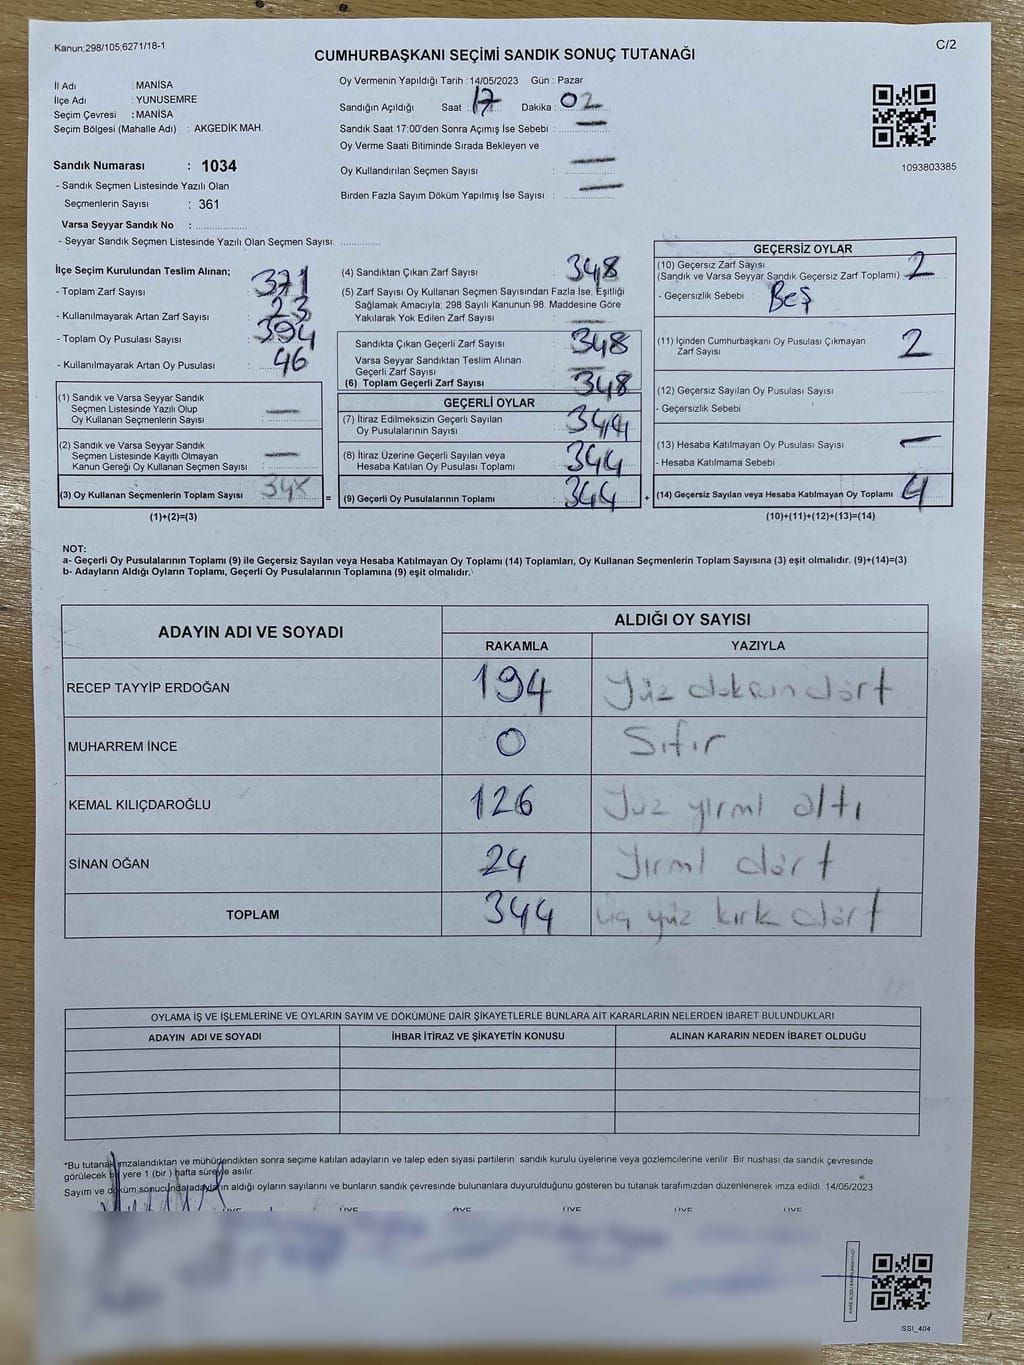 Kanun;298/105,6271/18-1
C/2
CUMHURBAŞKANI SEÇİMİ SANDIK SONUÇ TUTANAĞI
İl Adı : MANİSA
İlçe Adı : YUNUSEMRE
Seçim Çevresi : MANİSA
Seçim Bölgesi (Mahalle Adı) : AKGEDİK MAH.
Sandık Numarası : 1034
- Sandık Seçmen Listesinde Yazılı Olan
Seçmenlerin Sayısı : 361
Varsa Seyyar Sandık No :
- Seyyar Sandık Seçmen Listesinde Yazılı Olan Seçmen Sayısı:
Oy Vermenin Yapıldığı Tarih :14/05/2023 Gün : Pazar
Sandığın Açıldığı Saat : 17 Dakika : 02
Sandık Saat 17:00'den Sonra Açımış İse Sebebi : —
Oy Verme Saati Bitiminde Sırada Bekleyen ve
Oy Kullandırılan Seçmen Sayısı : —
Birden Fazla Sayım Döküm Yapılmış İse Sayısı : —
1093803385
İlçe Seçim Kurulundan Teslim Alınan;
- Toplam Zarf Sayısı : 371
- Kullanılmayarak Artan Zarf Sayısı : 23
- Toplam Oy Pusulası Sayısı : 394
- Kullanılmayarak Artan Oy Pusulası : 46
(1) Sandık ve Varsa Seyyar Sandık
Seçmen Listesinde Yazılı Olup
Oy Kullanan Seçmenlerin Sayısı : —
(2) Sandık ve Varsa Seyyar Sandık
Seçmen Listesinde Kayıtlı Olmayan
Kanun Gereği Oy Kullanan Seçmen Sayısı : —
(3) Oy Kullanan Seçmenlerin Toplam Sayısı : 348
(1)+(2)=(3)
(4) Sandıktan Çıkan Zarf Sayısı : 348
(5) Zarf Sayısı Oy Kullanan Seçmen Sayısından Fazla İse, Eşitliği
Sağlamak Amacıyla; 298 Sayılı Kanunun 98. Maddesine Göre
Yakılarak Yok Edilen Zarf Sayısı : —
Sandıkta Çıkan Geçerli Zarf Sayısı : 348
Varsa Seyyar Sandıktan Teslim Alınan
Geçerli Zarf Sayısı : —
(6) Toplam Geçerli Zarf Sayısı : 348
GEÇERLİ OYLAR
(7) İtiraz Edilmeksizin Geçerli Sayılan
Oy Pusulalarının Sayısı : 344
(8) İtiraz Üzerine Geçerli Sayılan veya
Hesaba Katılan Oy Pusulası Toplamı : 344
= (9) Geçerli Oy Pusulalarının Toplamı : 344
GEÇERSİZ OYLAR
(10) Geçersiz Zarf Sayısı
(Sandık ve Varsa Seyyar Sandık Geçersiz Zarf Toplamı) : 2
- Geçersizlik Sebebi : Beş
(11) İçinden Cumhurbaşkanı Oy Pusulası Çıkmayan
Zarf Sayısı : 2
(12) Geçersiz Sayılan Oy Pusulası Sayısı
- Geçersizlik Sebebi
(13) Hesaba Katılmayan Oy Pusulası Sayısı : —
- Hesaba Katılmama Sebebi
+ (14) Geçersiz Sayılan veya Hesaba Katılmayan Oy Toplamı : 4
(10)+(11)+(12)+(13)=(14)
NOT:
a- Geçerli Oy Pusulalarının Toplamı (9) ile Geçersiz Sayılan veya Hesaba Katılmayan Oy Toplamı (14) Toplamları, Oy Kullanan Seçmenlerin Toplam Sayısına (3) eşit olmalıdır. (9)+(14)=(3)
b- Adayların Aldığı Oyların Toplamı, Geçerli Oy Pusulalarının Toplamına (9) eşit olmalıdır.
ADAYIN ADI VE SOYADI
ALDIĞI OY SAYISI
RAKAMLA YAZIYLA
RECEP TAYYİP ERDOĞAN 194 Yüz doksan dört
MUHARREM İNCE 0 Sıfır
KEMAL KILIÇDAROĞLU 126 Yüz yirmi altı
SİNAN OĞAN 24 Yirmi dört
TOPLAM 344 Üç yüz kırk dört
OYLAMA İŞ VE İŞLEMLERİNE VE OYLARIN SAYIM VE DÖKÜMÜNE DAİR ŞİKAYETLERLE BUNLARA AİT KARARLARIN NELERDEN İBARET BULUNDUKLARI
ADAYIN ADI VE SOYADI İHBAR İTİRAZ VE ŞİKAYETİN KONUSU ALINAN KARARIN NEDEN İBARET OLDUĞU
*Bu tutanak imzalandıktan ve mühürlendikten sonra seçime katılan adayların ve talep eden siyasi partilerin sandık kurulu üyelerine veya gözlemcilerine verilir. Bir nüshası da sandık çevresinde
görülecek bir yere 1 (bir ) hafta süreyle asılır.
Sayım ve döküm sonucunda adayların aldığı oyların sayılarını ve bunların sandık çevresinde bulunanlara duyurulduğunu gösteren bu tutanak tarafımızdan düzenlenerek imza edildi. 14/05/2023
ÜYE ÜYE ÜYE ÜYE ÜYE ÜYE
SSI_404